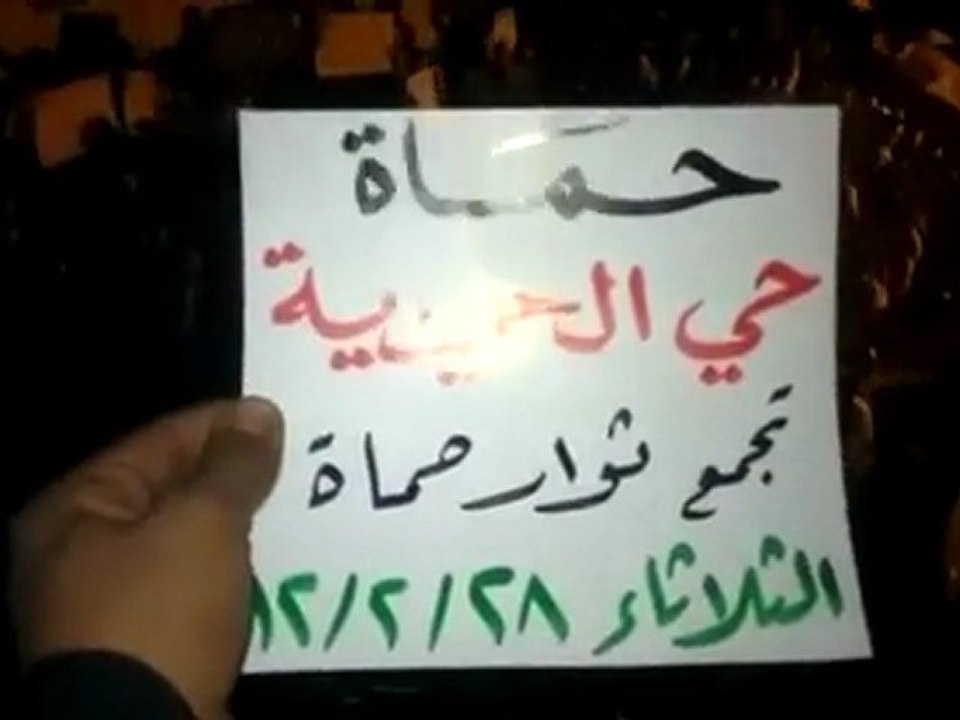 حماة
حي الحميدية
تجمع ثوار حماة
الثلاثاء ٢٨/٢/١٢